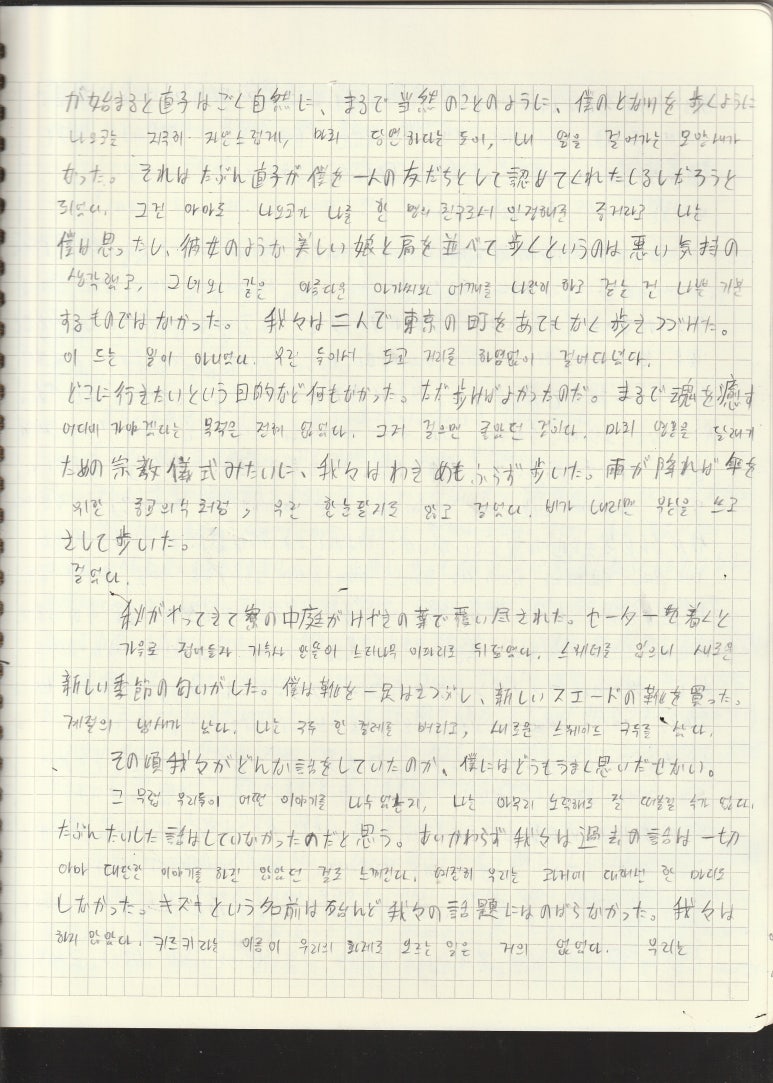 が始まると直子はごく自然に、まるで当然のことのように、僕のとなりを歩くように
나오코는 지극히 자연스럽게, 마치 당연하다는 듯이, 내 옆을 걸어가는 모양새가
なった。それはたぶん直子が僕を一人の友だちとして認めてくれたしるしだろうと
되었다. 그건 아마도 나오코가 나를 한 명의 친구로서 인정해준 증거라고 나는
僕は思ったし、彼女のような美しい娘と肩を並べて歩くというのは悪い気持の
생각했고, 그녀와 같은 아름다운 아가씨와 어깨를 나란히 하고 걷는 건 나쁜 기분
するものではなかった。我々は二人で東京の町をあてもなく歩きつづけた。
이 드는 일이 아니었다. 우린 둘이서 도쿄 거리를 하염없이 걸어다녔다.
どこに行きたいという目的など何もなかった。ただ歩けばよかったのだ。まるで魂を癒す
어디에 가야겠다는 목적은 전혀 없었다. 그저 걸으면 좋았던 것이다. 마치 영혼을 달래기
ための宗教儀式みたいに、我々はわきめもふらず歩いた。雨が降れば傘を
위한 종교의식처럼, 우린 한눈팔지도 않고 걸었다. 비가 내리면 우산을 쓰고
さして歩いた。
걸었다.
秋がやってきて寮の中庭がけやきの葉で覆い尽された。セーターを着ると
가을로 접어들자 기숙사 안뜰이 느티나무 이파리로 뒤덮였다. 스웨터를 입으니 새로운
新しい季節の匂いがした。僕は靴を一足はきつぶし、新しいスエードの靴を買った。
계절의 냄새가 났다. 나는 구두 한 켤레를 버리고, 새로운 스웨이드 구두를 샀다.
その頃我々がどんな話をしていたのか、僕にはどうもうまく思いだせない。
그 무렵 우리들이 어떤 이야기를 나누었는지, 나는 아무리 노력해도 잘 떠올릴 수가 없다.
たぶんたいした話はしていなかったのだと思う。あいかわらず我々は過去の話は一切
아마 대단한 이야기를 하진 않았던 걸로 느껴진다. 여전히 우리는 과거에 대해선 한 마디도
しなかった。キズキという名前は殆んど我々の話題にはのぼらなかった。我々は
하지 않았다. 키즈키라는 이름이 우리의 화제로 오르는 일은 거의 없었다. 우리는